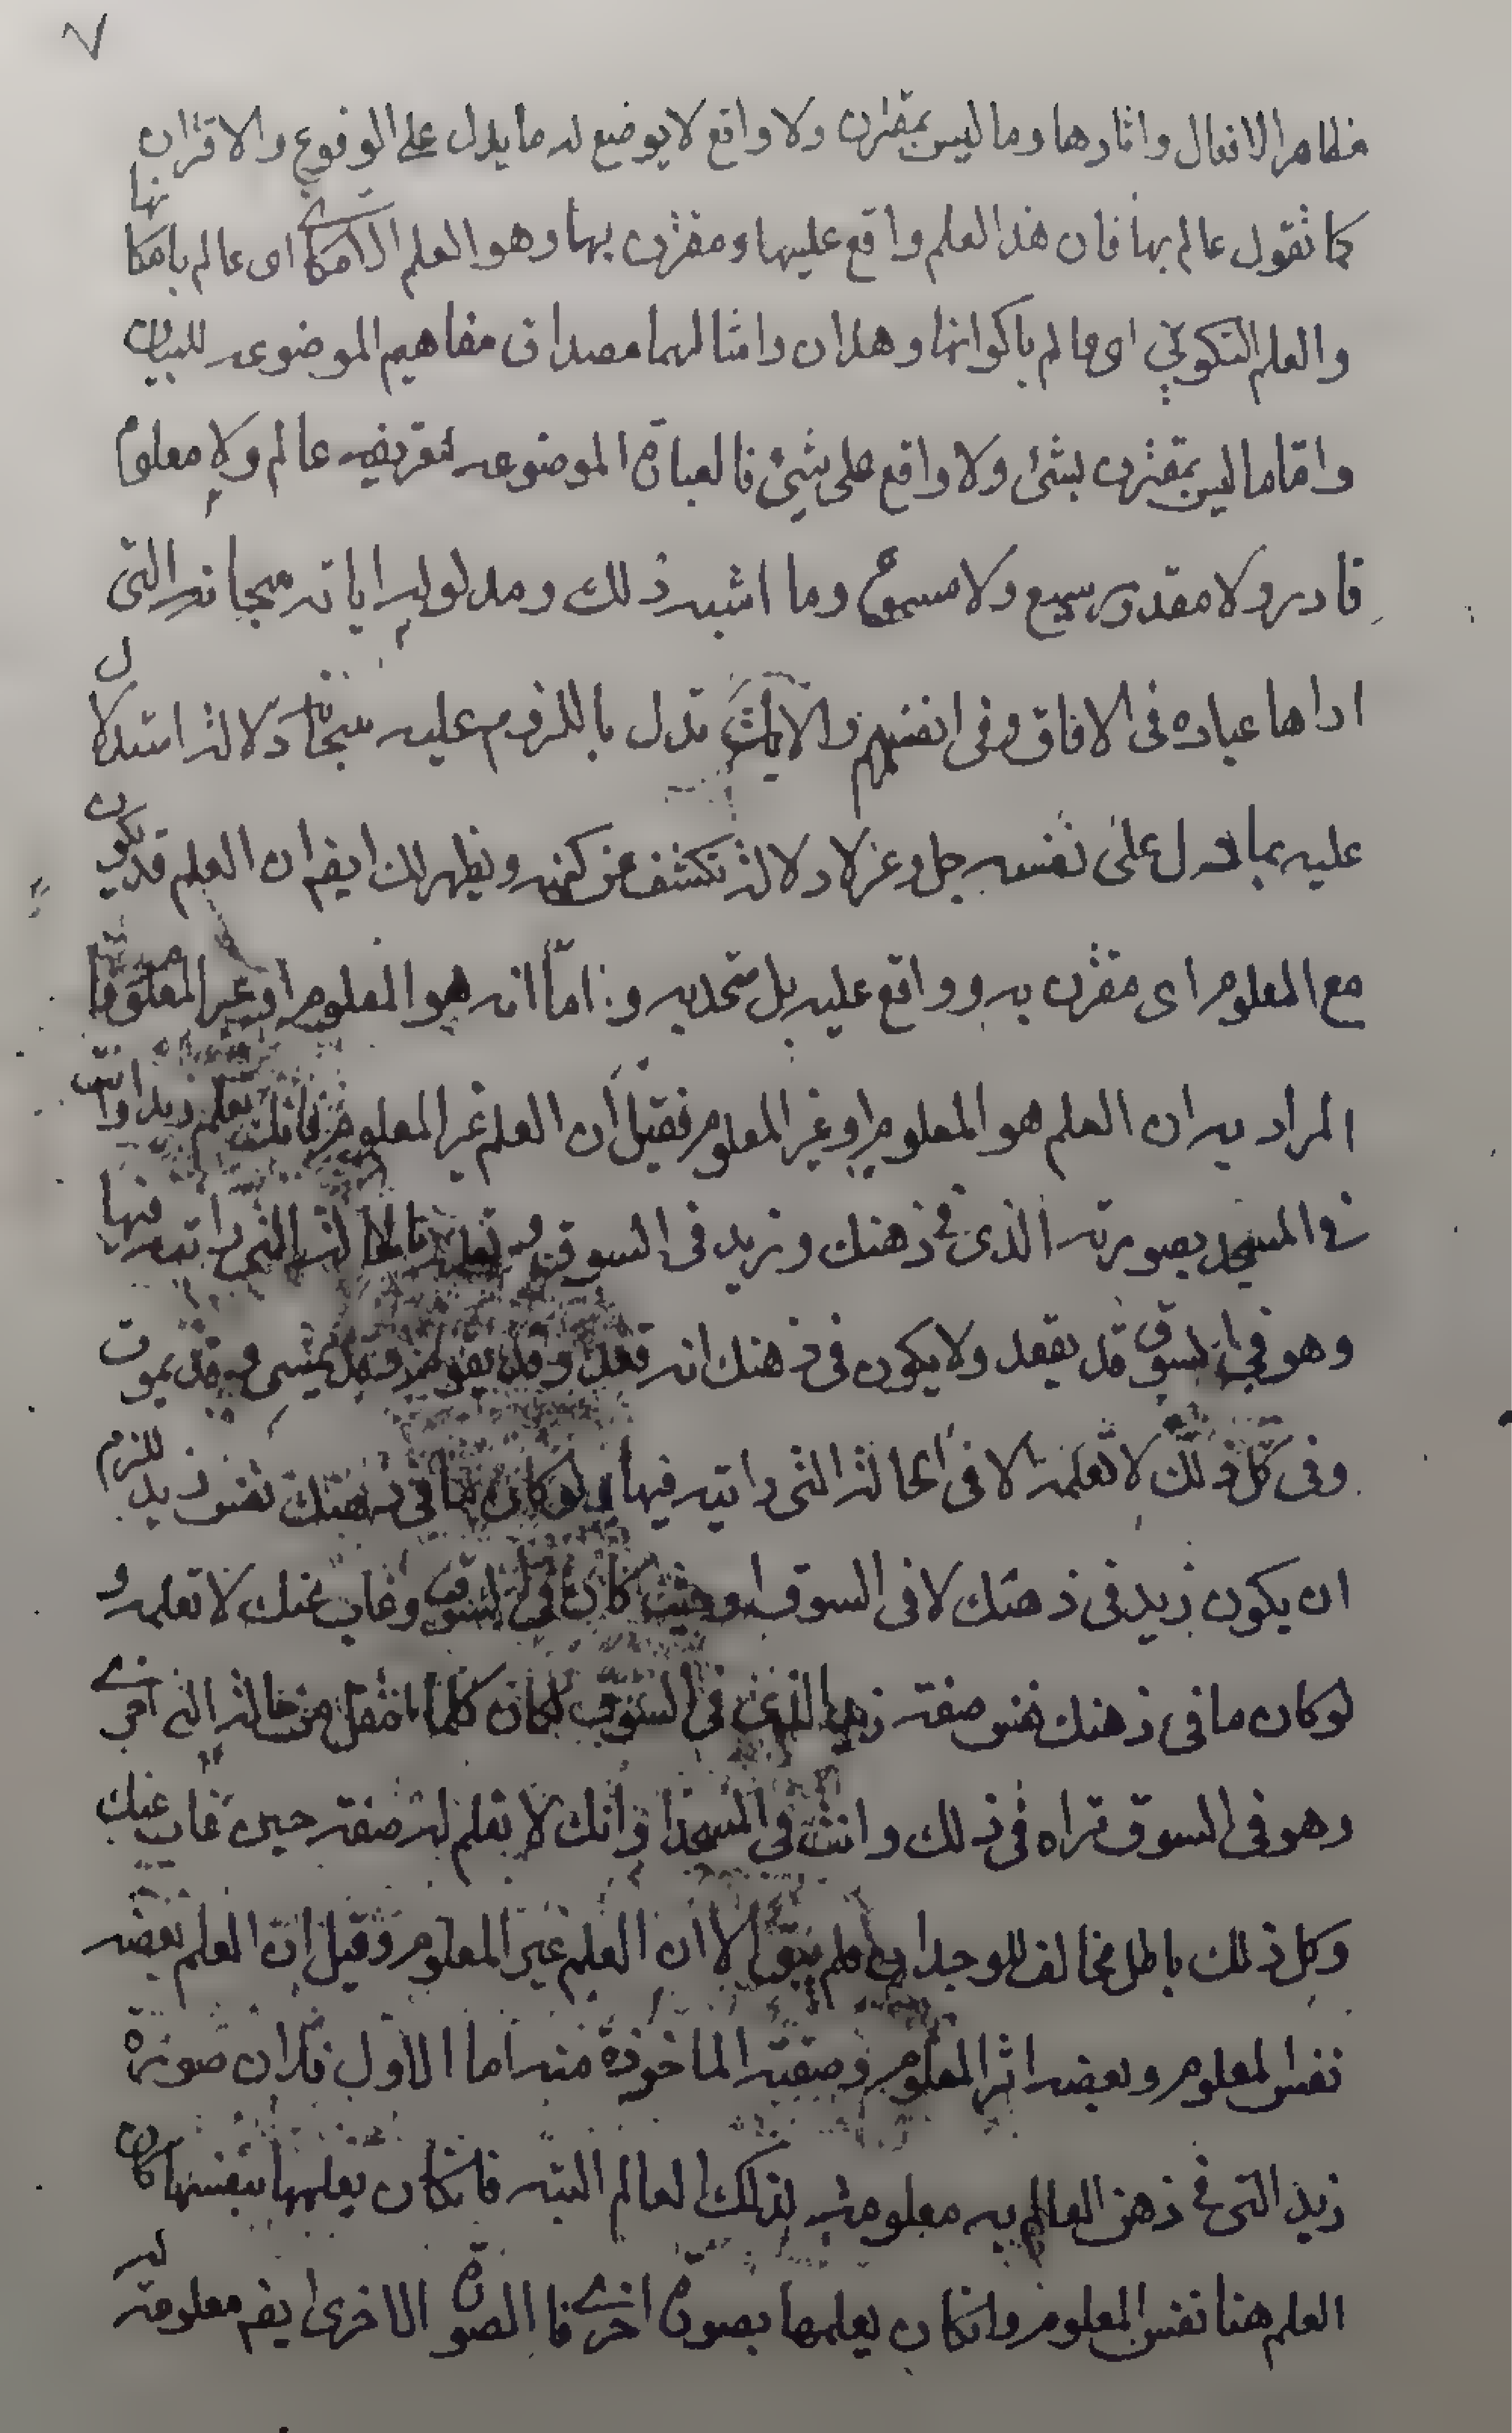 ٧
مظاهر الافعال واثارها وما ليس بمقترن ولا واقع لا يوضع له ما يدل على الوقوع والاقتران
كما تقول عالم بها فان هذا العلم واقع عليها ومقترن بها وهو العلم الامكاني اى عالم بامكانها
والعلم التكويني اى عالم باكوانها وهذان وامثالهما مصداق مفاهيم الموضوعه للبيان
واما ما ليس بمقترن بشئ ولا واقع على شئ فالعبارة الموضوعه لتعريفه عالم ولا معلوم
قادر ولا مقدور سميع ولا مسموع وما اشبه ذلك ومدلوله اياته سبحانه التى
اراها عباده فى الافاق وفى انفسهم والايات تدل باللزوم عليه سبحانه دلالة استدلال
عليه بما دل على نفسه جل وعز لا دلالة تكشف عن كنهه ويظهر لك ايضا ان العلم قد يكون
مع المعلوم اى مقترن به وواقع عليه بل متحد به واما انه هو المعلوم او غير المعلوم
المراد به ان العلم هو المعلوم او غير المعلوم فقيل ان العلم غير المعلوم فانك تعلم زيدا وانت
فى المسجد بصورته الذى فى ذهنك وزيد فى السوق تعلمه بالحالة التى رايته فيها
وهو فى السوق قد يقعد ولا يكون فى ذهنك انه قعد وقد يقوم وقد يمشى وقد يموت
وفى كل ذلك لا تعلمه الا فى الحالة التى رايته فيها ولو كان ما فى ذهنك نفس زيد للزم
ان يكون زيد فى ذهنك لا فى السوق او حيث كان فى السوق وغاب عنك لا تعلمه و
لو كان ما فى ذهنك نفس صفة زيد الذى فى السوق لكان كلما انتقل من حالة الى اخرى
وهو فى السوق تراه فى ذلك وانت فى المسجد او انك لا تعلم له صفة حين غاب عنك
وكل ذلك باطل مخالف للوجدان فلم يبق الا ان العلم غير المعلوم وقيل ان العلم بعضه
نفس المعلوم وبعضه اثر المعلوم وصفته الماخوذة منه اما الاول فلان صورة
زيد التى فى ذهن العالم به معلومة لذلك العالم البته فان كان يعلمها بنفسها كان
العلم هنا نفس المعلوم وان كان يعلمها بصورة اخرى فالصورة الاخرى ايضا معلومة له